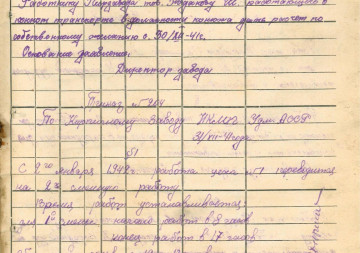 Работнику Пивзавода тов. работающего в
конном транспорте в должности конюха дать расчет по
собственному желанию с 30/XII-41г.
Основание заявление.
Директор завода
Приказ № 204
По заводу НКМП АССР
31/XII-41 года
§1
С 2го января 1942г. работа цеха №1 переводится
на 2х сменную работу.
Время работ устанавливается:
для 1й смены начало работ в 8 часов
конец работ в 17 часов